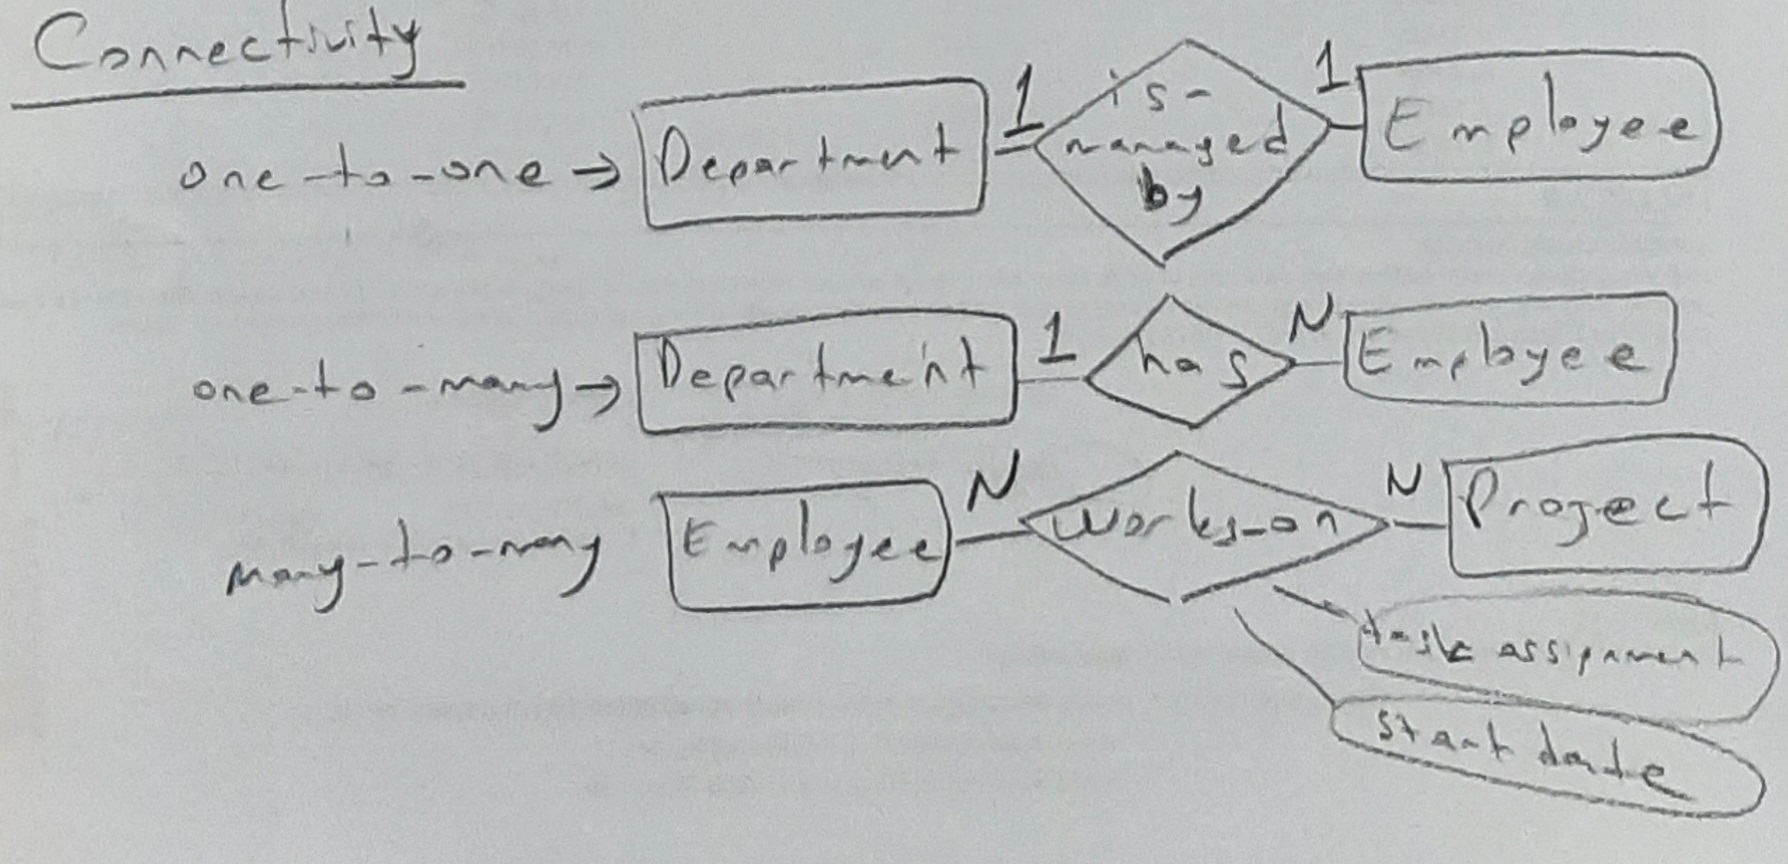 Connectivity
one-to-one → Department 1 is-managed by 1 Employee
one-to-many → Department 1 has N Employee
many-to-many Employee N works-on N Project
task assignment
start date